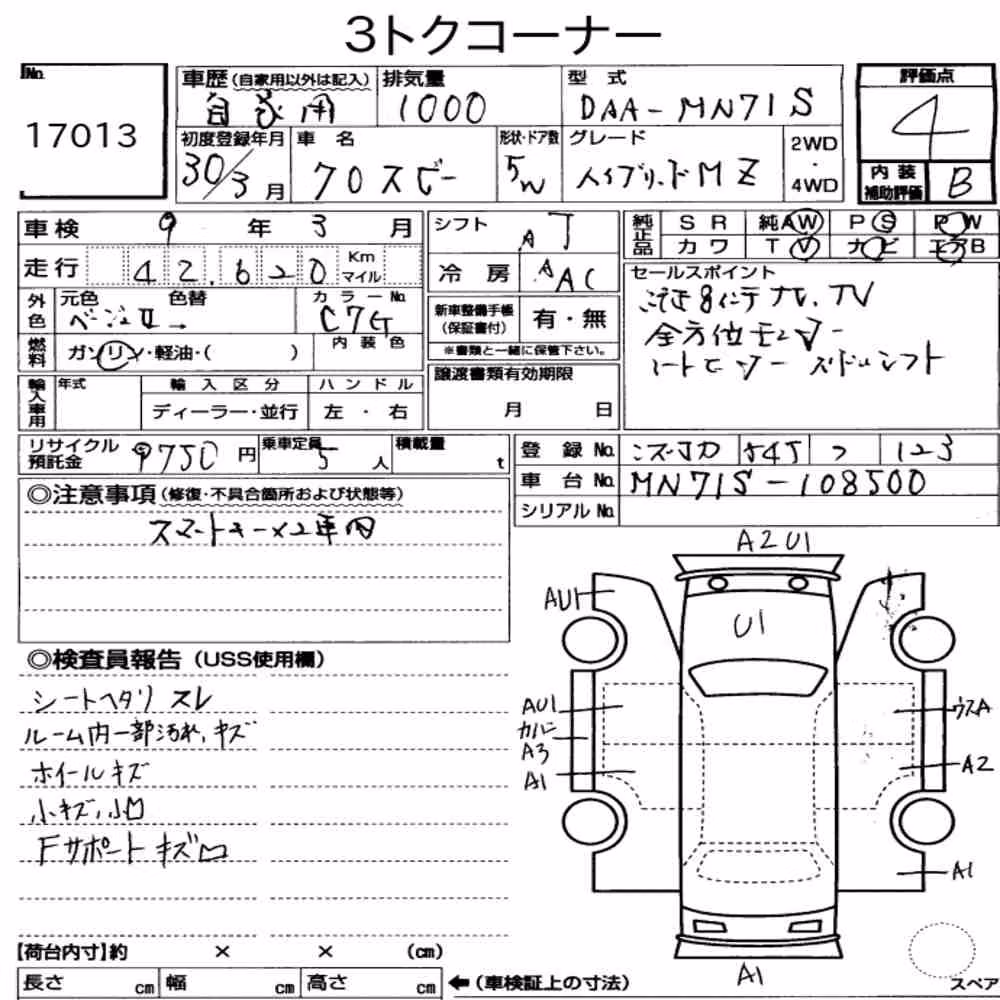 3トクコーナー
No. 17013
車歴 (自家用以外は記入) 自家用
排気量 1000
型式 DAA-MN71S
評価点 4
初度登録年月 30/3月
車名 クロスビー
形状・ドア数 5W
グレード ハイブリッドMZ
2WD・4WD
内装補助評価 B
車検 9年3月
走行 42,620 Km マイル
シフト AT
冷房 AAC
純正品 SR 純AW PS PW
カワ TV ナビ エアB
外色 元色 ベージュⅡ 色替 →
カラーNo. C7G
燃料 ガソリン・軽油・( )
内装色
新車整備手帳 (保証書付) 有・無
※書類と一緒に保管下さい。
セールスポイント
8インチナビ、TV
全方位モニター
シートヒーター パドルシフト
輸入車用 年式 輸入区分 ハンドル
ディーラー・並行 左・右
譲渡書類有効期限
月 日
リサイクル預託金 9750円
乗車定員 5人
積載量 t
登録No. 545 つ 123
車台No. MN71S-108500
シリアルNo.
◎注意事項 (修復・不具合箇所および状態等)
スマートキー×2車内
◎検査員報告 (USS使用欄)
シートヘタリ スレ
ルーム内一部汚れ、キズ
ホイールキズ
小キズ、小凹
Fサポートキズ凹
A2 U1
AU1
U1
AU1
カバー
A3
A1
ウスA
A2
A1
A1
スペア
【荷台内寸】約 × × (cm)
長さ cm 幅 cm 高さ cm ←(車検証上の寸法)